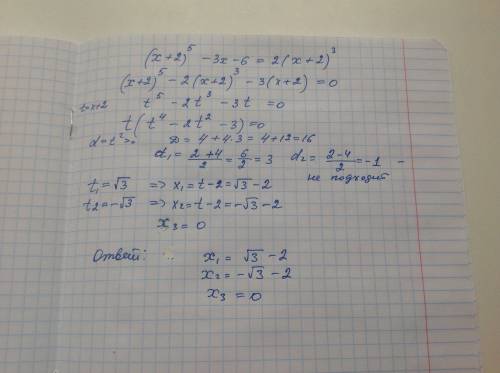 (x+2)⁵ - 3x - 6 = 2(x+2)³
(x+2)⁵ - 2(x+2)³ - 3(x+2) = 0
t=x+2 t⁵ - 2t³ - 3t = 0
t(t⁴ - 2t² - 3) = 0
d = t² >0 D = 4 + 4·3 = 4+12 = 16
d₁ = (2+4)/2 = 6/2 = 3 d₂ = (2-4)/2 = -1 -
не подходит
t₁ = √3 => x₁ = t-2 = √3 - 2
t₂ = -√3 => x₂ = t-2 = -√3 - 2
x₃ = 0
Ответ: x₁ = √3 - 2
x₂ = -√3 - 2
x₃ = 0